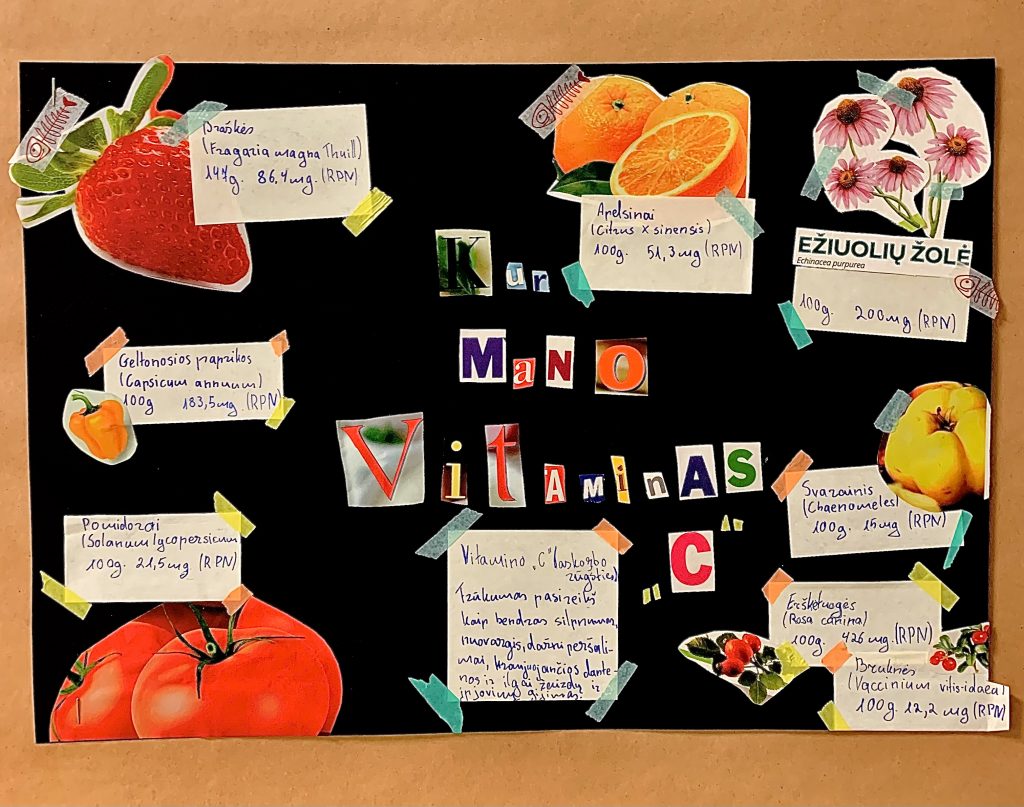 Braškės
(Fragaria magna Thuill)
147g. 86,4mg. (RPN)
Apelsinai
(Citrus x sinensis)
100g. 51,3mg (RPN)
EŽIUOLIŲ ŽOLĖ
Echinacea purpurea
100g. 200mg (RPN)
Kur
MaNO
VitAMinAS
"C"
Geltonosios paprikos
(Capsicum annuum)
100g 183,5mg. (RPN)
Svarainis
(Chaenomeles)
100g. 15mg (RPN)
Pomidorai
(Solanum lycopersicum
100g. 21,5mg (RPN)
Vitamino „C" (askorbo
rūgšties)
Trūkumas pasireikš
kaip bendras silpnumas,
nuovargis, dažni peršali-
mai, kraujuojančios dante-
nos ir ilgai žaizdų ir
įpjovimų gijimas.
Erškėtuogės
(Rosa canina)
100g. 426mg. (RPN)
Bruknės
(Vaccinium vitis-idaea)
100g. 12,2mg (RPN)